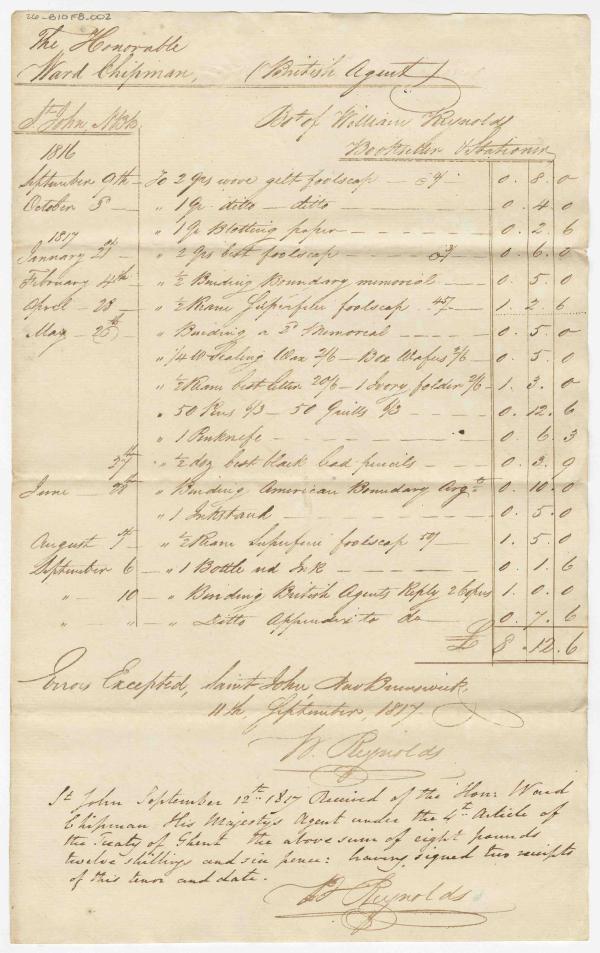 26-B10F8-002
The Honorable
Ward Chipman, (British Agent)
St. John, NBk Bot of William Reynolds
Bookseller & Stationer
1816
September 9th — To 2 qrs wove gilt foolscap — 0. 8. 0
October 5 — " 1 qr ditto — ditto — 0. 4. 0
" 1 qr Blotting paper — 0. 2. 6
1817
January 21st — " 2 qrs best foolscap — 3/ — 0. 6. 0
February 4th — " ½ Binding Boundary memorial — 0. 5. 0
April — 28 — " ½ Ream Superfine foolscap 45/ — 1. 2. 6
May — 26th " Binding a 5th Memorial — 0. 5. 0
" ¼ lb Sealing Wax 2/6 — Box Wafers 2/6 — 0. 5. 0
" ½ Ream best letter 20/6 — 1 Ivory folder 2/6 — 1. 3. 0
" 50 Pens 6/3 — 50 Quills 6/3 — 0. 12. 6
" 1 Penknife — 0. 6. 3
27 — " ½ doz best black lead pencils — 0. 3. 9
June — 28th " Binding American Boundary Argts 0. 10. 0
" 1 Inkstand — 0. 5. 0
August 9 — " ½ Ream Superfine foolscap 50/ 1. 5. 0
September 6 — " 1 Bottle red Ink — 0. 1. 6
" — 10 — " Binding British Agents Reply 2 Copies 1. 0. 0
" " — " Ditto Appendix to do — 0. 7. 6
£ 8. 12. 6
Errors Excepted, Saint John, New Brunswick,
11th, September, 1817
W. Reynolds
St John September 12th 1817 Received of the Hon: Ward
Chipman His Majestys Agent under the 4th Article of
the Treaty of Ghent the above sum of eight pounds
twelve shillings and six pence: having signed two receipts
of this tenor and date.
W Reynolds